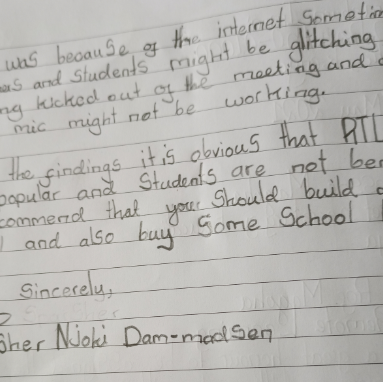 was because of the internet sometim
and students might be glitching
ng kicked out of the meeting and
mic might not be working.
the findings it is obvious that ATL
popular and students are not ben
commend that you should build
and also buy some School
Sincerely,
her Njoki Dam-madsen